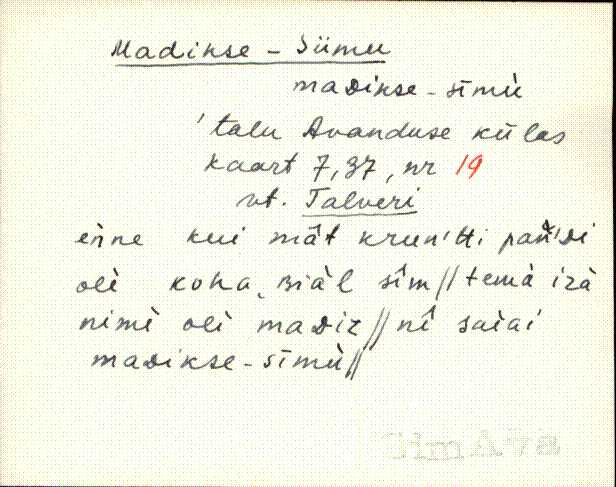 Madikse - Siimu
madikse - sīmù
'talu Avanduse külas
kaart 7, 37, nr 19
vt. Talveri
eǹne kui mât kruǹ'tti pań'di
olì koha, ʙiàl sîm // temà izà
nimì olì madiz // nî saìai
madikse - sīmù //
SimAva